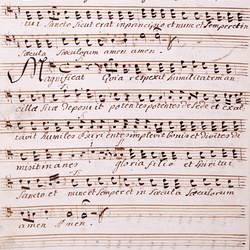 tui Sancto sicut erat in principio et nunc et semper et in
Sæcula Sæculorum amen amen.
Magnificat Quia respexit humilitatem an
cillæ suæ deposuit potentes potentes de sede et exal
tavit humiles Esurientes implevit bonis et divites di
misit inanes gloria filio et Spiritui
Sancto et nunc et semper in Sæcula Sæculorum
amen Amen.